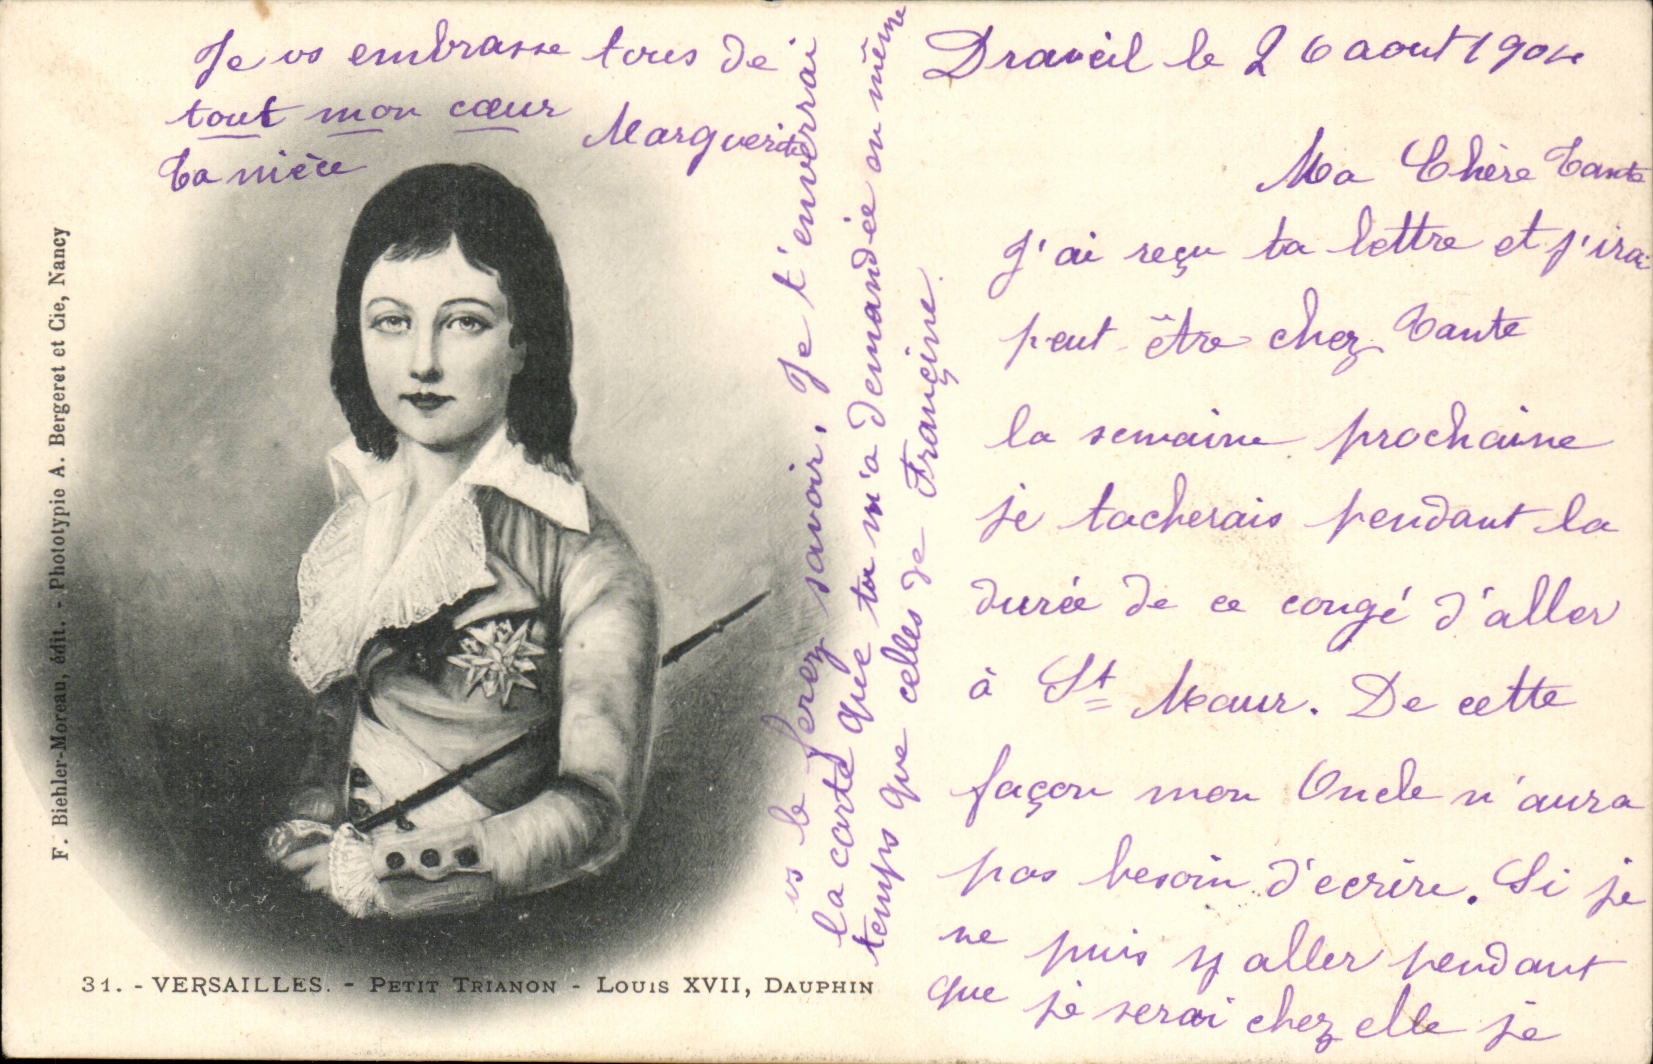 Draveil le 26 aout 1904
Ma Chère Tante
J'ai reçu ta lettre et j'irai
peut-être chez Tante
la semaine prochaine
je tacherais pendant la
durée de ce congé d'aller
à St Maur. De cette
façon mon Oncle n'aura
pas besoin d'écrire. Si je
ne puis y aller pendant
que je serai chez elle je
vs le ferez savoir. Je t'enverrai
la carte que tu m'a demandée en même
temps que celles de Françine.
Je vs embrasse tous de
tout mon cœur
Marguerite
Ta nièce
F. Biehler-Moreau, édit. - Phototypie A. Bergeret et Cie, Nancy
31. - VERSAILLES. - PETIT TRIANON - LOUIS XVII, DAUPHIN